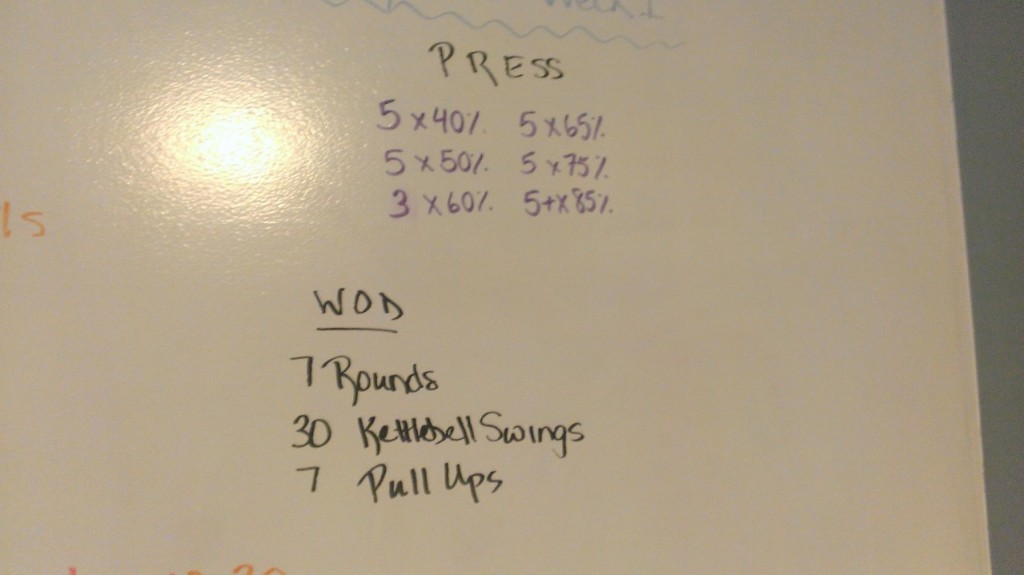 Week 1
PRESS
5 x 40% 5 x 65%
5 x 50% 5 x 75%
3 x 60% 5+ x 85%
ls
WOD
7 Rounds
30 Kettlebell Swings
7 Pull Ups